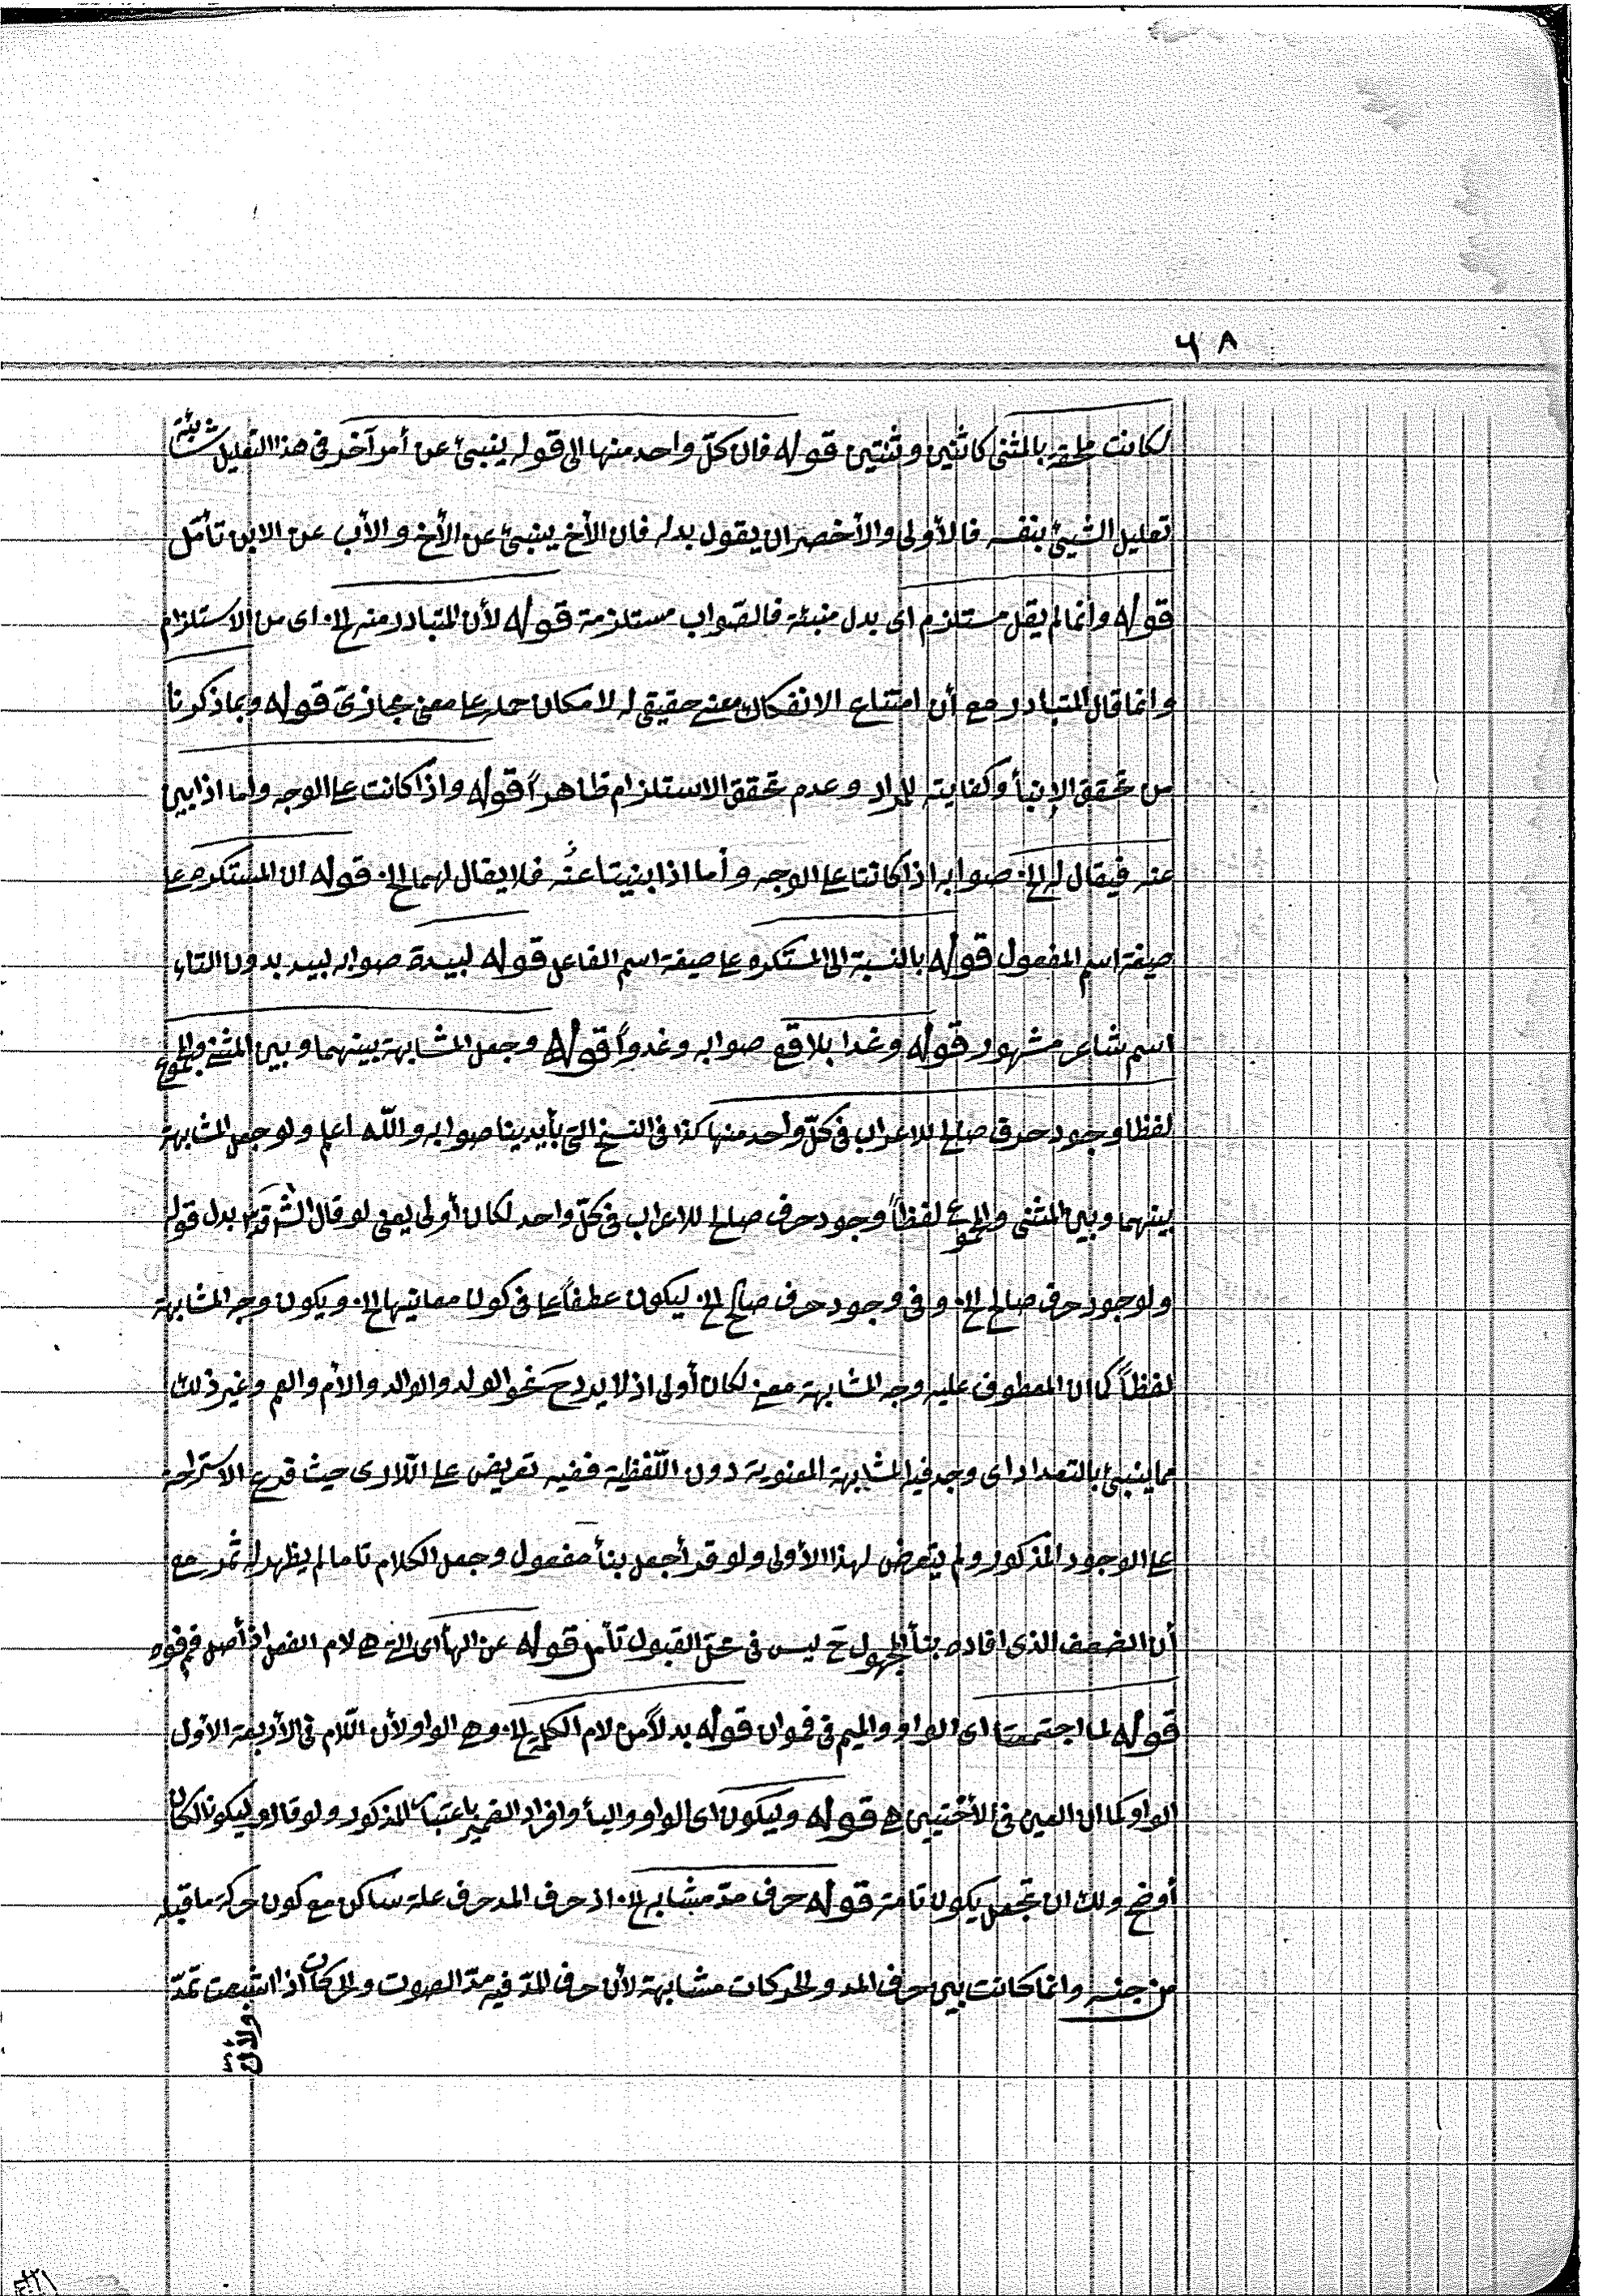 ٦٨
لكانت ملحقة بالمثنى كاثنين وثنتين قوله فان كلّ واحد منها الى قوله ينبئ عن أمر آخر فى هذا التعليل شائبة
تعليل الشيئ بنفسه فالأولى والأخصر ان يقول بدله فان الأخ ينبئ عن الأخ والأب عن الابن تأمّل
قوله وانما لم يقل مستلزم اى بدل منبئة فالصّواب مستلزمة قوله لأن المتبادر منه الخ اى من الاستلزام
وانما قال المتبادر مع أن امتناع الانفكاك معنى حقيقى له لامكان حمله عا معنى مجازىّ قوله وبماذكرنا
من تحقق الإنبأ وكفايته للمراد وعدم تحقق الاستلزام ظاهراً قوله واذا كانت عا الوجه واما اذا بين
عنه فيقال له الخ صوابه اذا كانتا عا الوجه وأما اذا بنيتا عنه فلا يقال لهما الخ قوله ان المستكره عا
صيغة اسم المفعول قوله بالنسبة الى المستكره عا صيغة اسم الفاعل قوله لبيدة صوابه لبيد بدون التاء
اسم شاعر مشهور قوله وغدا بلاقع صوابه وغدواً قوله وجعل المشابهة بينهما وبين المثنى والمجموع
لفظا وجود حرف صالح للاعراب فى كلّ واحد منها كذا فى النسخ التى بأيدينا صوابه والله اعلم ولو جعل المشابهة
بينهما وبين المثنى والمجموع لفظاً وجود حرف صالح للاعراب فى كلّ واحد لكان أولى يعنى لو قال الش قده بدل قوله
ولوجود حرف صالح الخ وفى وجود حرف صالح الخ ليكون عطفاً عا فى كون معانيها الخ ويكون وجه المشابهة
لفظاً كما ان المعطوف عليه وجه المشابهة معنى لكان أولى اذ لا يرد ح نحو الولد والوالد والأم والعم وغير ذلك
مما ينبئ بالتعدد اى وجد فيه المشابهة المعنوية دون اللّفظية ففيه تعريض عا اللّارى حيث فرع الاستراحة
عا الوجود المذكور ولم يتعرض لهذا الأولى ولو قد أجعل بنأ مفعول وجعل الكلام تاما لم يظهر له ثمر مع
أن الضعف الذى افاده بنأ المجهول ح ليس فى محلّ القبول تأمل قوله عن الهأ اى التى هى لام الفعل اذ أصل فم فوه
قوله لما اجتمعتا اى الواو والميم فى فموان قوله بدلاً من لام الكلمة الخ وهى الواو لأن اللّام فى الأربعة الأول
الواو كما ان العين فى الأخيتين هى قوله وليكون اى الواو واليأ وافراد الضمير باعتبار المذكور ولو قال وليكونا لكان
أوضح ولك ان تجعل يكون تامة قوله حرف مدّ مشابه الخ اذ حرف المد حرف علة ساكن مع كون حركة ما قبله
من جنسه وانما كانت بين حرف المد والحركات مشابهة لأن حرف المدّ فيه مدّ الصوت والحركات اذا اشبعت تمدّ
ولأنّ